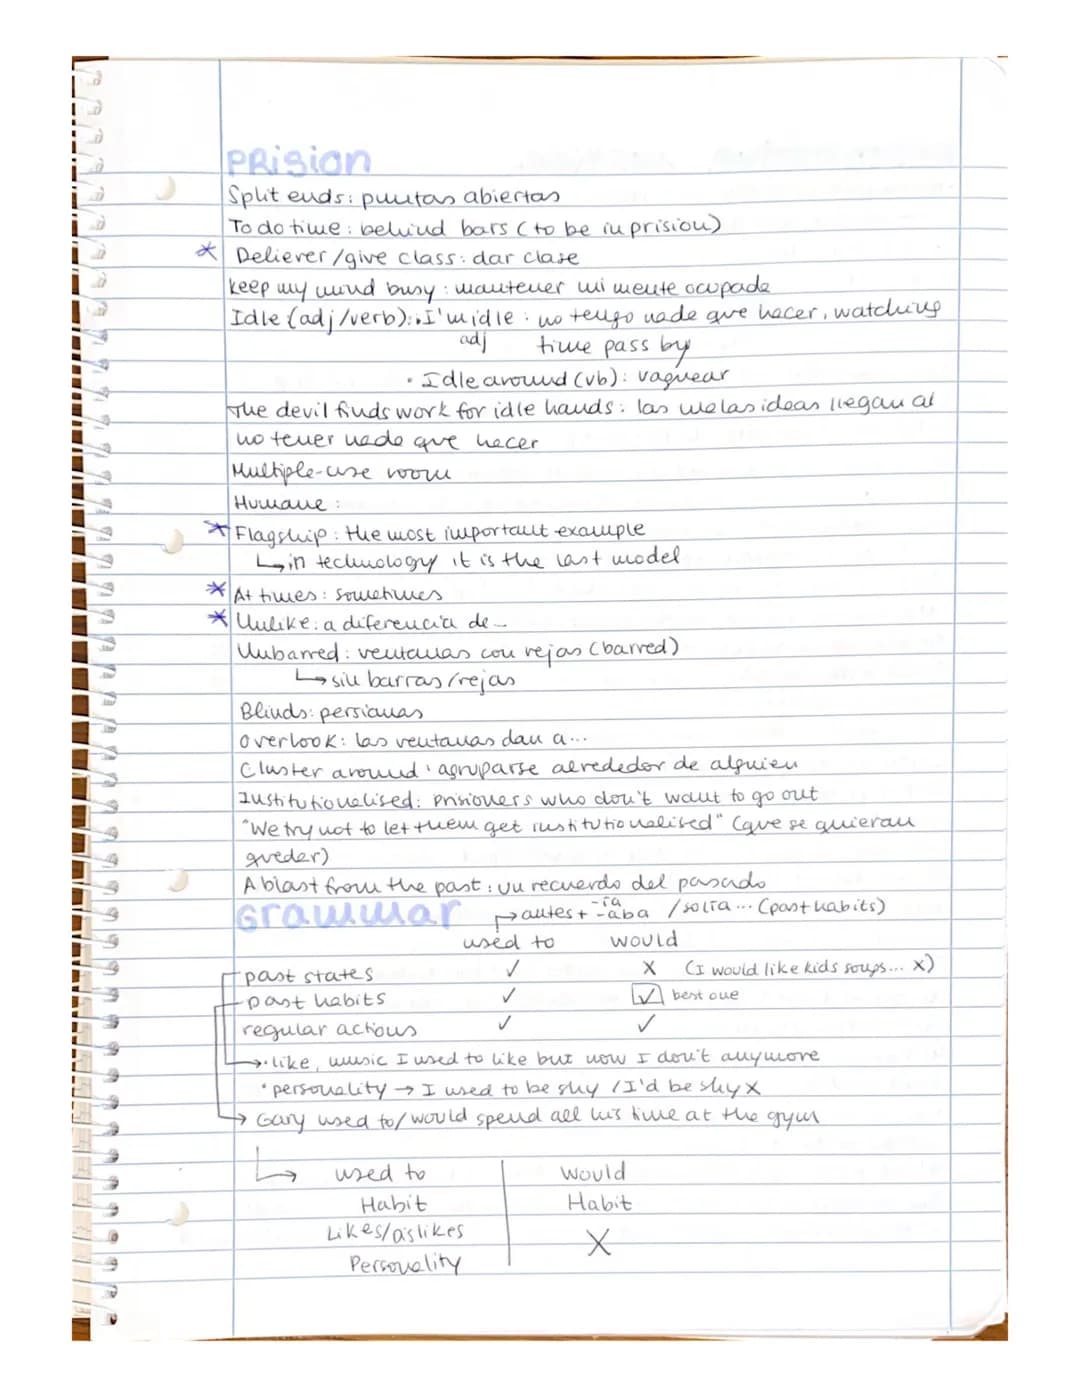 PRision
Split ends: puntas abiertas
To do time: behind bars (to be in prision)
* Deliever/give class: dar clase
Keep my mind busy: mantener mi mente ocupada
Idle (adj/verb): • I'm idle: no tengo nada que hacer, watching
adj time pass by
• Idle around (vb): vaguear
The devil finds work for idle hands: las malas ideas llegan al
no tener nada que hacer
Multiple-use room
Humane:
* Flagship: the most important example
↳ in technology it is the last model
* At times: sometimes
* Unlike: a diferencia de...
Unbarred: ventanas con rejas (barred)
↳ sin barras/rejas
Blinds: persianas
Overlook: las ventanas dan a...
Cluster around: agruparse alrededor de alguien
Institutionalised: prisioners who don't want to go out
"We try not to let them get institutionalised" (que se quieran
quedar)
A blast from the past: un recuerdo del pasado
Grammar → antes + -ía -aba /solía... (past habits)
used to would
past states ✓ X (I would like kids soups... X)
past habits ✓ ✓ best one
regular actions ✓ ✓
→ • like, music I used to like but now I don't anymore
• personality → I used to be shy /I'd be shy X
→ Gary used to/would spend all his time at the gym
↳ used to would
Habit Habit
Likes/dislikes X
Personality